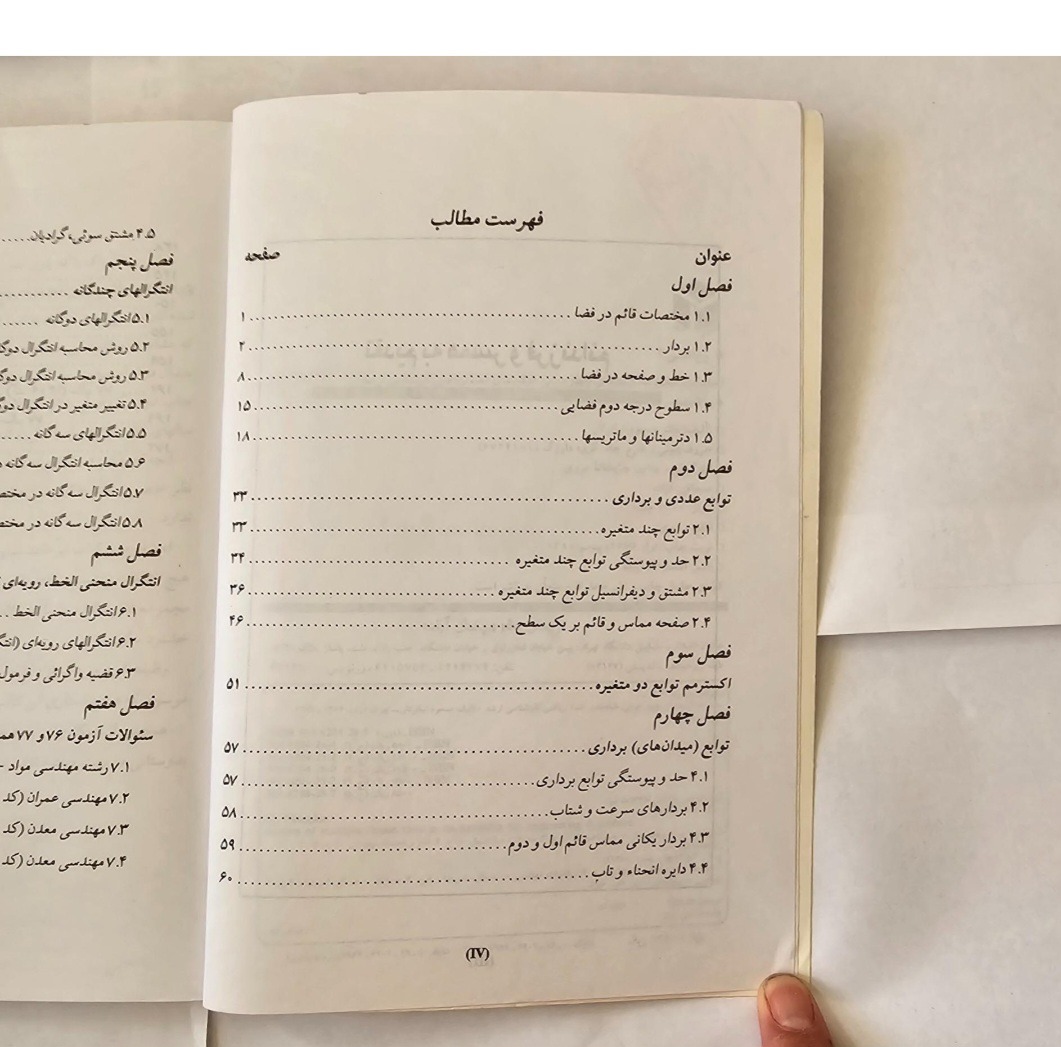 فهرست مطالب
عنوان صفحه
فصل اول
۱.۱ مختصات قائم در فضا ۱
۱.۲ بردار ۲
۱.۳ خط و صفحه در فضا ۸
۱.۴ سطوح درجه دوم فضایی ۱۵
۱.۵ دترمینانها و ماتریسها ۱۸
فصل دوم
توابع عددی و برداری ۳۳
۲.۱ توابع چند متغیره ۳۳
۲.۲ حد و پیوستگی توابع چند متغیره ۳۴
۲.۳ مشتق و دیفرانسیل توابع چند متغیره ۳۶
۲.۴ صفحه مماس و قائم بر یک سطح ۴۶
فصل سوم
اکسترمم توابع دو متغیره ۵۱
فصل چهارم
توابع (میدان‌های) برداری ۵۷
۴.۱ حد و پیوستگی توابع برداری ۵۷
۴.۲ بردارهای سرعت و شتاب ۵۸
۴.۳ بردار یکانی مماس قائم اول و دوم ۵۹
۴.۴ دایره انحناء و تاب ۶۰
(IV)
۴.۵ مشتق سوئی، گرادیان
فصل پنجم
انتگرالهای چندگانه
۵.۱ انتگرالهای دوگانه
۵.۲ روش محاسبه انتگرال دوگا
۵.۳ روش محاسبه انتگرال دوگ
۵.۴ تغییر متغیر در انتگرال دوگ
۵.۵ انتگرالهای سه گانه
۵.۶ محاسبه انتگرال سه گانه
۵.۷ انتگرال سه گانه در مختص
۵.۸ انتگرال سه گانه در مختص
فصل ششم
انتگرال منحنی الخط، رویه‌ای
۶.۱ انتگرال منحنی الخط
۶.۲ انتگرالهای رویه‌ای (انتگ
۶.۳ قضیه واگرائی و فرمول
فصل هفتم
سئوالات آزمون ۷۶ و ۷۷ هم
۷.۱ رشته مهندسی مواد -
۷.۲ مهندسی عمران (کد
۷.۳ مهندسی معدن (کد
۷.۴ مهندسی معدن (کد